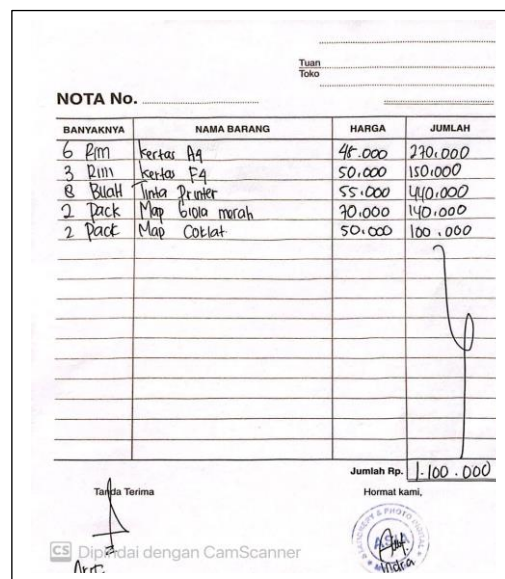 Tuan
Toko
NOTA No.
BANYAKNYA NAMA BARANG HARGA JUMLAH
6 Rim Kertas A4 45.000 270.000
3 Rim Kertas F4 50.000 150.000
8 Buah Tinta Printer 55.000 440.000
2 Pack Map Biola merah 70.000 140.000
2 Pack Map Coklat 50.000 100.000
Jumlah Rp. 1.100.000
Tanda Terima Hormat kami,
ASIA
CS Dipindai dengan CamScanner
Indra